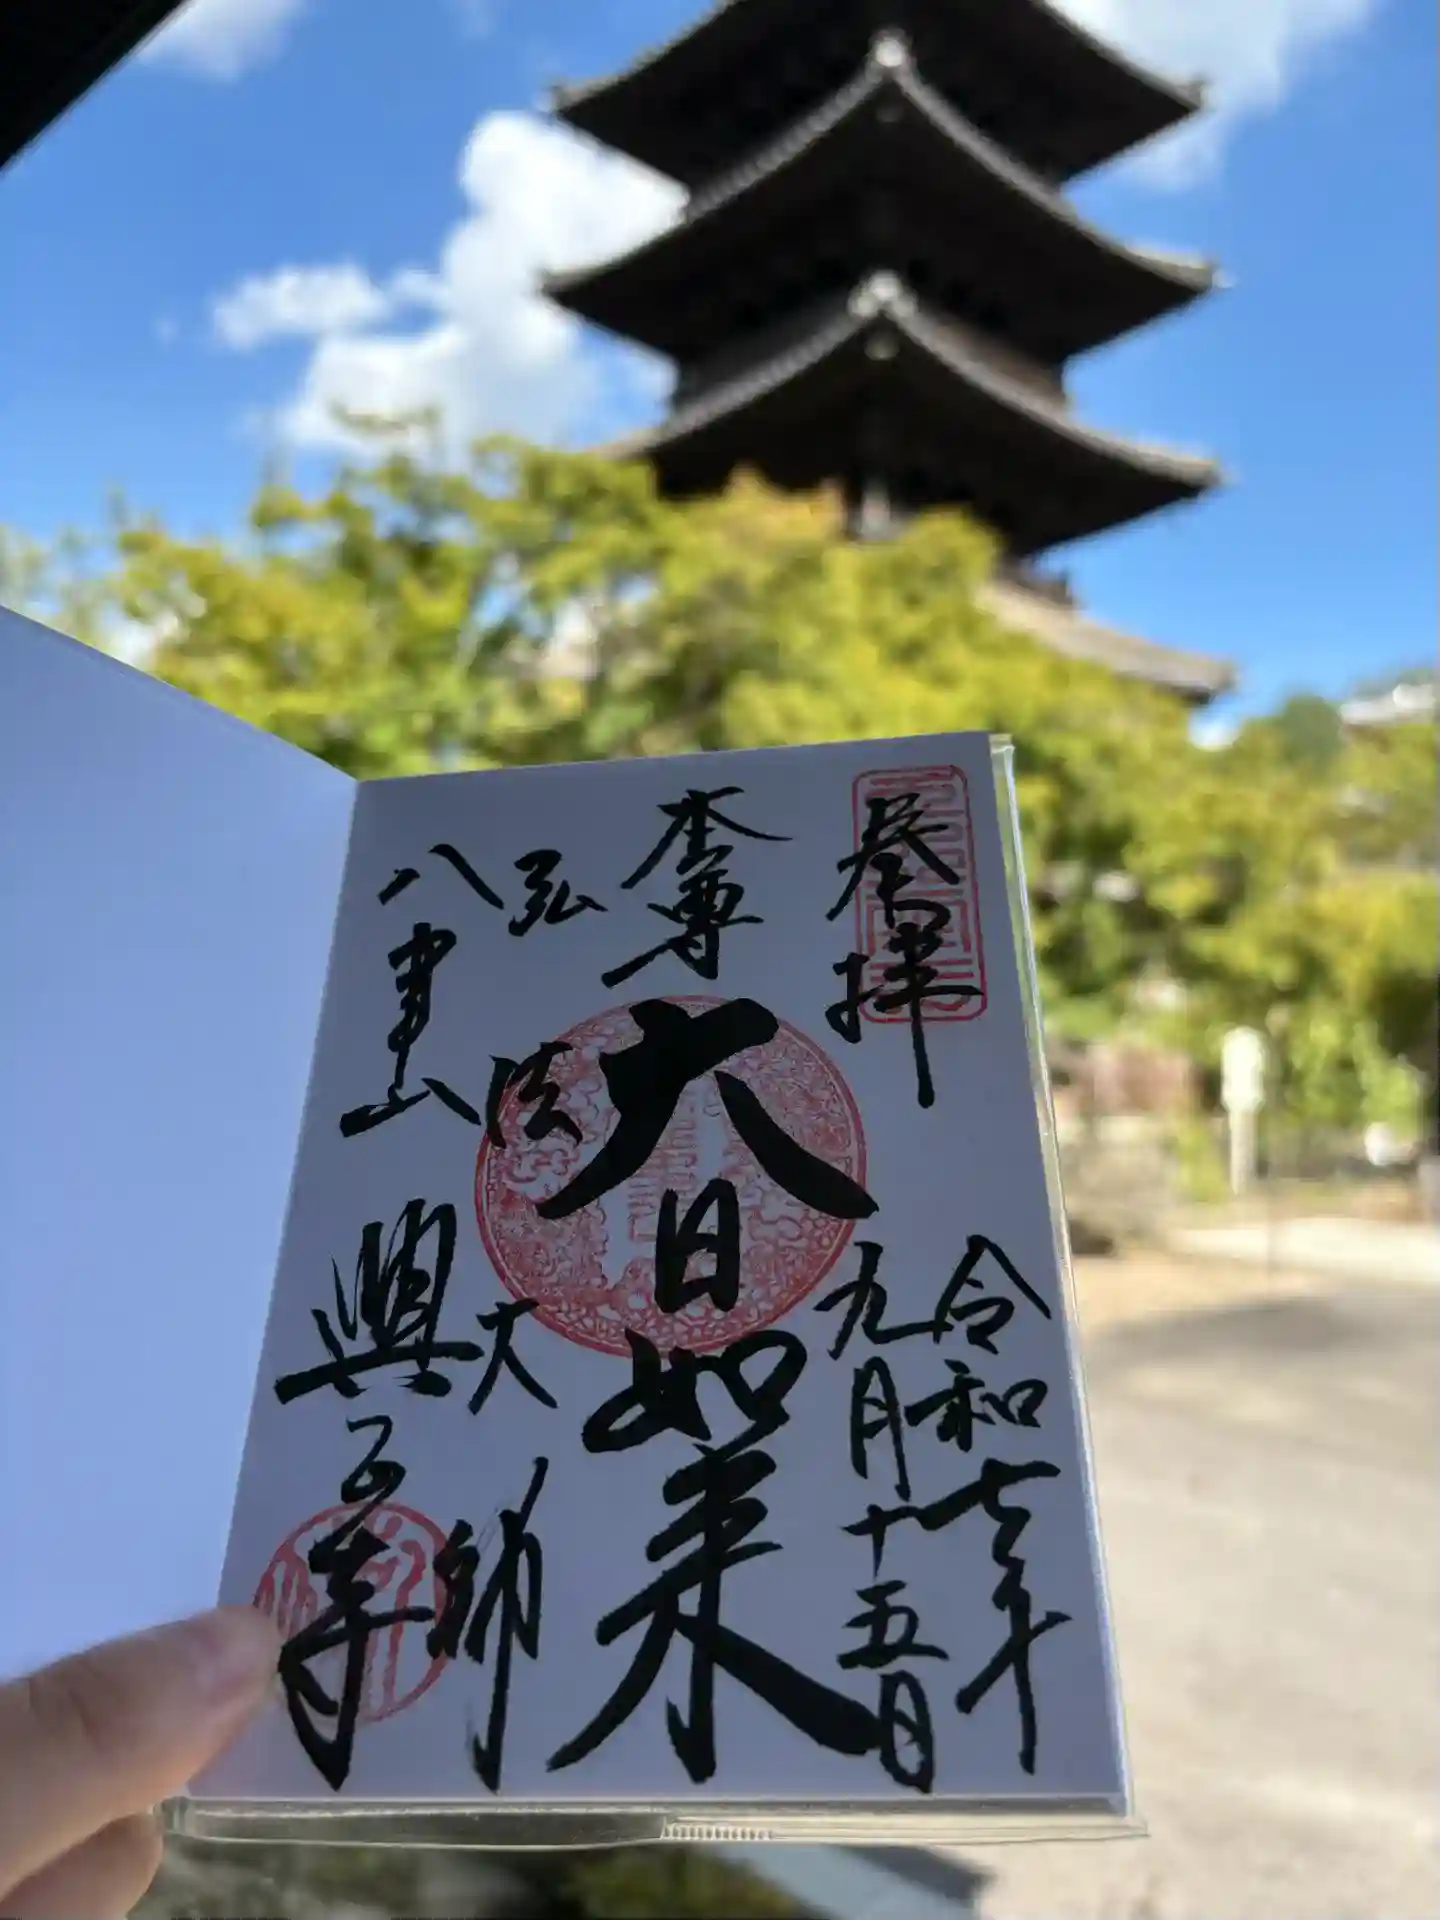 奉拝
令和七年
九月十五日
本尊
大日如来
弘法大師
八事山
興正寺